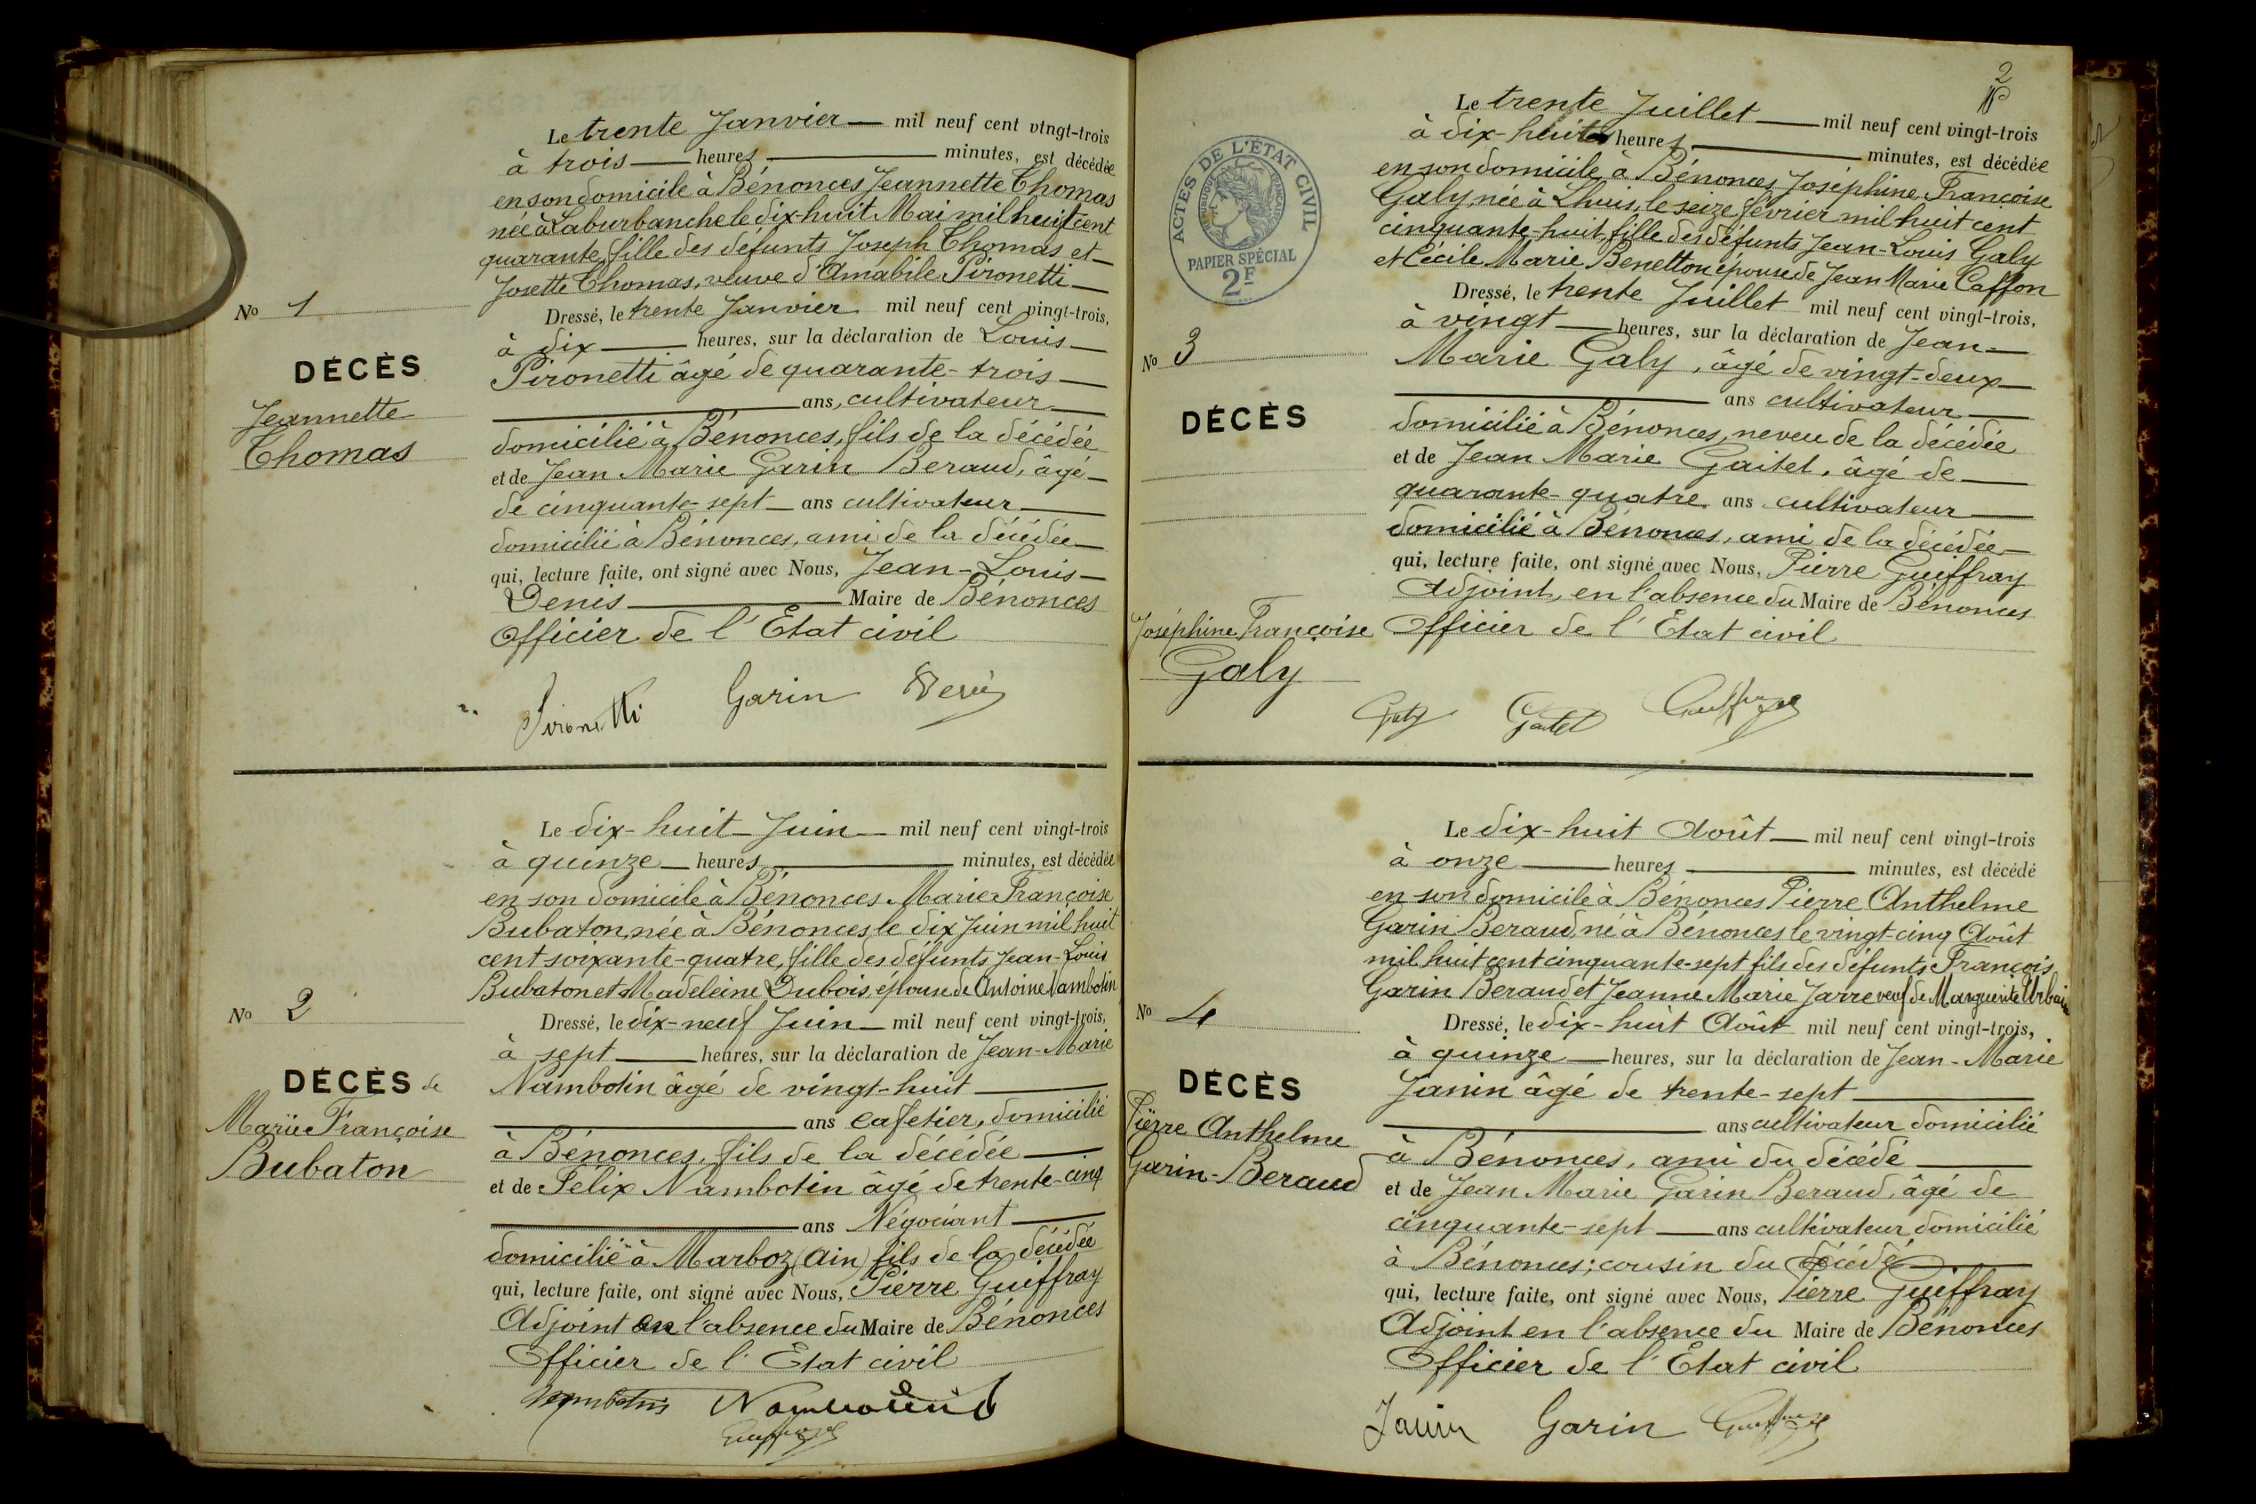 Le trente Janvier — mil neuf cent vingt-trois
à trois — heures — minutes, est décédée
en son domicile à Bénonces Jeannette Thomas
née à Laburbanche le dix-huit Mai mil huit cent
quarante, fille des défunts Joseph Thomas et —
Josette Thomas, veuve d'Amabile Pironetti —
Dressé, le trente Janvier mil neuf cent vingt-trois,
à dix — heures, sur la déclaration de Louis —
Pironetti âgé de quarante-trois —
— ans, cultivateur —
domicilié à Bénonces, fils de la décédée
et de Jean Marie Garin Beraud, âgé —
de cinquante-sept — ans cultivateur —
domicilié à Bénonces, ami de la décédée —
qui, lecture faite, ont signé avec Nous, Jean-Louis —
Denis — Maire de Bénonces
Officier de l'Etat civil
No 1
DÉCÈS
Jeannette
Thomas
Pironetti Garin Denis
Le dix-huit Juin — mil neuf cent vingt-trois
à quinze — heures — minutes, est décédée
en son domicile à Bénonces Marie Françoise
Bubaton, née à Bénonces le dix Juin mil huit
cent soixante-quatre, fille des défunts Jean-Louis
Bubaton et Madeleine Dubois, épouse de Antoine Nambotin
Dressé, le dix-neuf Juin — mil neuf cent vingt-trois,
à sept — heures, sur la déclaration de Jean-Marie
Nambotin âgé de vingt-huit —
— ans cafetier, domicilié
à Bénonces, fils de la décédée —
et de Félix Nambotin âgé de trente-cinq
— ans Négociant —
domicilié à Marboz (Ain) fils de la décédée
qui, lecture faite, ont signé avec Nous, Pierre Guiffray
Adjoint en l'absence du Maire de Bénonces
Officier de l'Etat civil
No 2
DÉCÈS de
Marie Françoise
Bubaton
Nambotin Nambotin
2
ACTES DE L'ÉTAT CIVIL
RÉPUBLIQUE FRANÇAISE
PAPIER SPÉCIAL
2F
Le trente Juillet — mil neuf cent vingt-trois
à dix-huit heures — minutes, est décédée
en son domicile à Bénonces Joséphine Françoise
Galy, née à Lhuis, le seize février mil huit cent
cinquante-huit, fille des défunts Jean-Louis Galy
et Cécile Marie Benetton épouse de Jean Marie Caffon
Dressé, le trente Juillet mil neuf cent vingt-trois,
à vingt — heures, sur la déclaration de Jean —
Marie Galy, âgé de vingt-deux —
— ans cultivateur —
domicilié à Bénonces, neveu de la décédée
et de Jean Marie Gaitet, âgé de —
quarante-quatre ans cultivateur —
domicilié à Bénonces, ami de la décédée —
qui, lecture faite, ont signé avec Nous, Pierre Guiffray
Adjoint, en l'absence du Maire de Bénonces
Officier de l'Etat civil
No 3
DÉCÈS
Joséphine Françoise
Galy
Galy Gaitet Guiffray
Le dix-huit Août — mil neuf cent vingt-trois
à onze — heures — minutes, est décédé
en son domicile à Bénonces Pierre Anthelme
Garin Beraud, né à Bénonces le vingt-cinq Août
mil huit cent cinquante-sept fils des défunts François
Garin Beraud et Jeanne Marie Jarre veuf de Marguerite Urbain
Dressé, le dix-huit Août mil neuf cent vingt-trois,
à quinze — heures, sur la déclaration de Jean-Marie
Janin âgé de trente-sept —
— ans cultivateur domicilié
à Bénonces, ami du décédé —
et de Jean Marie Garin Beraud, âgé de
cinquante-sept — ans cultivateur domicilié
à Bénonces; cousin du décédé —
qui, lecture faite, ont signé avec Nous, Pierre Guiffray
Adjoint en l'absence du Maire de Bénonces
Officier de l'Etat civil
No 4
DÉCÈS
Pierre Anthelme
Garin-Beraud
Janin Garin Guiffray